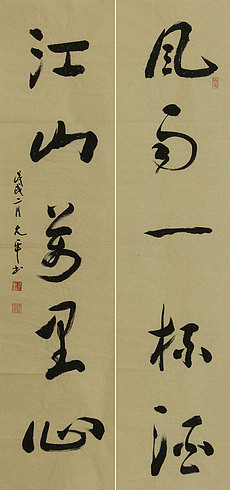 风雨一杯酒
江山万里心
戊戌二月 大平书